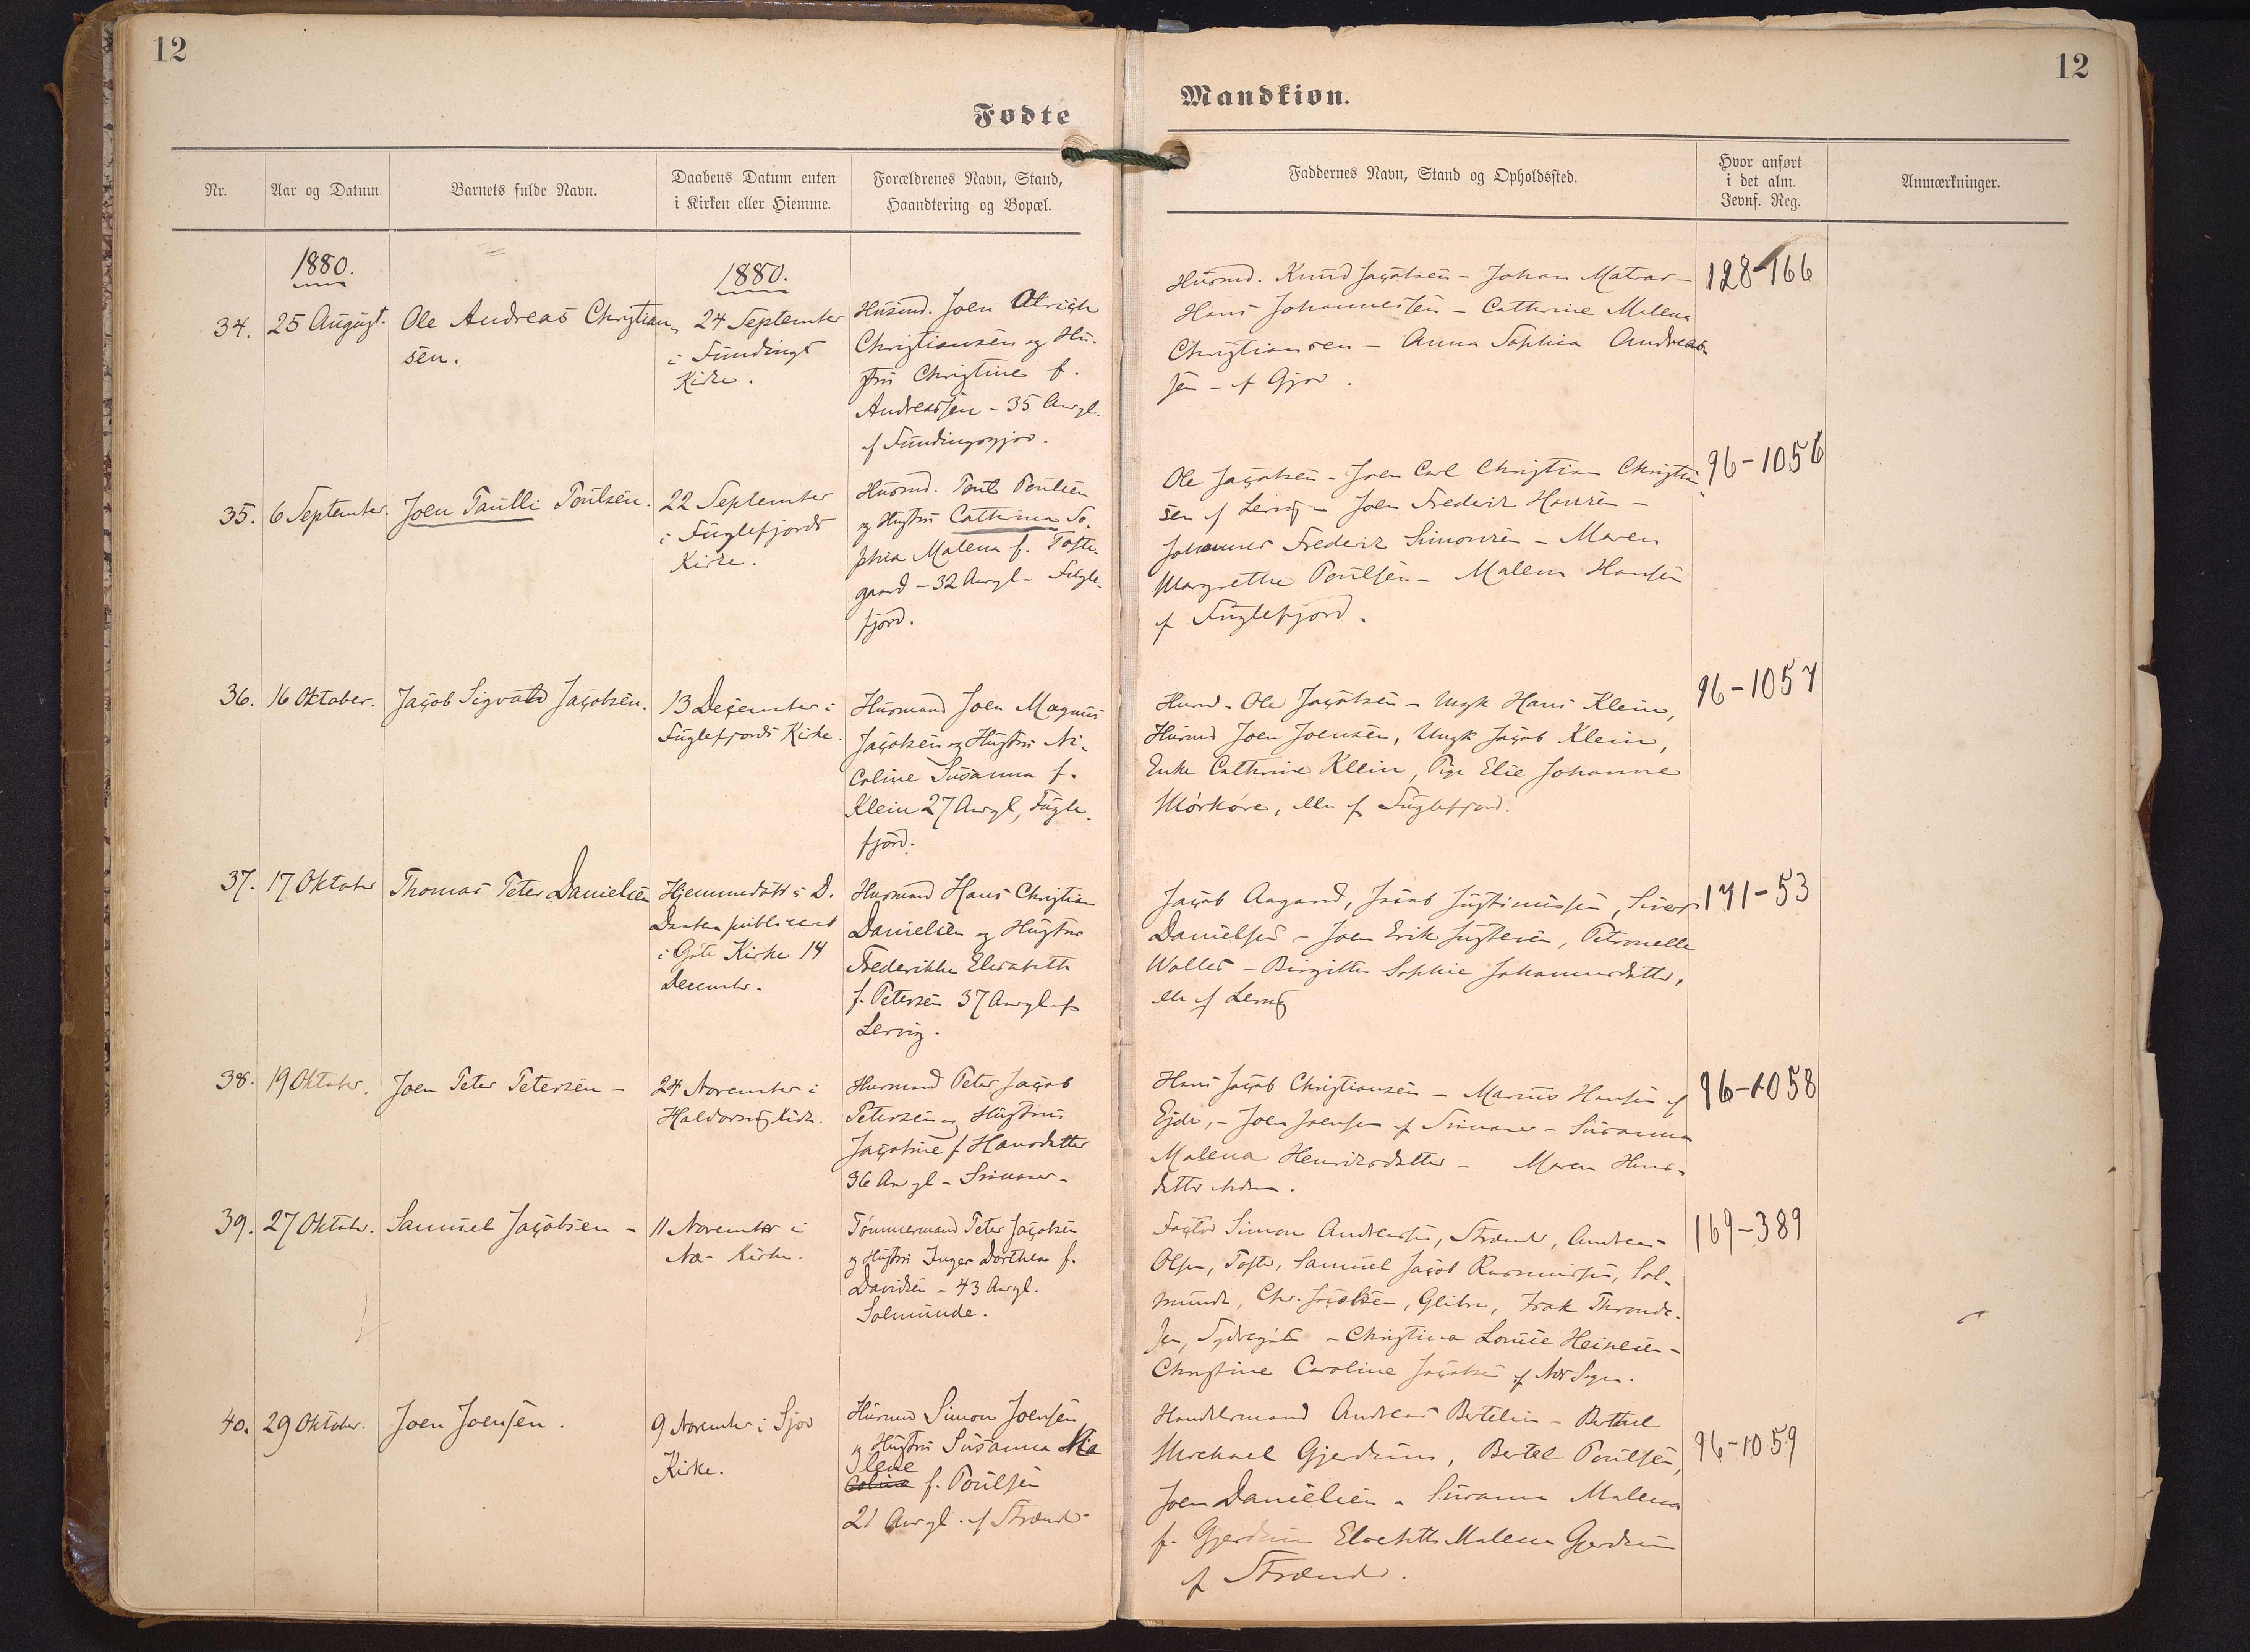 12
12
Fødte
Mandkiøn.
Nr.
Aar og Datum.
Barnets fulde Navn.
Daabens Datum enten
i Kirken eller Hiemme.
Forældrenes Navn, Stand,
Haandtering og Bopæl.
Faddernes Navn, Stand og Opholdssted.
Hvor anført
i det alm.
Jevnf. Reg.
Anmærkninger.
1880.
1880.
34.
25 August.
Ole Andreas Christian-
sen.
24 September
i Fundings
Kirke.
Husmd. Joen Olrich
Christiansen og Hu-
stru Christine f.
Andreassen - 35 Aargl.
af Fundingsgjov.
Husmd. Knud Jacobsen - Johan Matras -
Hans Johannessen - Cathrine Malena
Christiansen - Anna Sophia Andreas-
sen - af Gjov.
128-166
35.
6 September.
Joen Paulli Poulsen.
22 September
i Fuglefjords
Kirke.
Husmd. Poul Poulsen
og Hustru Cathrina So-
phia Malena f. Tofte-
gaard - 32 Aargl - Fugle-
fjord.
Ole Jacobsen - Joen Carl Christian Christian-
sen af Lervig - Joen Frederik Hansen -
Johannes Frederik Simonsen - Maren
Margrethe Poulsen - Malena Hansen
af Fuglefjord.
96-1056
36.
16 Oktober.
Jacob Sigvald Jacobsen.
13 December i
Fuglefjords Kirke.
Husmand Joen Magnus
Jacobsen og Hustru Ni-
coline Susanna f.
Klein 27 Aargl, Fugle-
fjord.
Husmd. Ole Jacobsen - Ungk Hans Klein,
Husmd Joen Joensen, Ungk Jacob Klein,
Enke Cathrine Klein, Pige Elie Johanne
Mörköre, alle af Fuglefjord.
96-1057
37.
17 Oktober
Thomas Peter Danielsen
Hjemmedöbt s. D.
Daaben publiceret
i Göte Kirke 14
December.
Husmand Hans Christian
Danielsen og Hustru
Frederikke Elisabeth
f. Petersen 37 Aargl af
Lervig.
Jacob Aagaard, Jacob Justinussen, Sivert
Danielsen - Joen Erik Justesen, Petronelle
- Birgitte Sophie Johannesdatter,
alle af Lervig
171-53
38.
19 Oktober.
Joen Peter Petersen -
24 November i
Haldorsvig Kirke.
Husmand Peter Jacob
Petersen og Hustru
Jacobine f Hansdatter
36 Aargl -
Hans Jacob Christiansen - Marius Hansen af
Ejde, - Joen Joensen af - Susanna
Malena Henriksdatter - Maren Hans-
datter
96-1058
39.
27 Oktober.
Samuel Jacobsen -
11 November i
Næs Kirke.
Tömmermand Peter Jacobsen
og Hustru Inger Dorthea f.
Davidsen - 43 Aargl.
Solmunde.
Simon Andreassen, Strænder, Andreas
Olsen, Tofte, Samuel Jacob Rasmussen, Sol-
munde, Chr. Jacobsen, Glibre, Isak Thronds-
sen, Sydregöte - Christina Louise Heinesen -
Christine Caroline Jacobsen af
169-389
40.
29 Oktober.
Joen Joensen.
9 November i Sjov
Kirke.
Husmd Simon Joensen
og Hustru Susanna
f. Poulsen
21 Aargl. af Strænder
Handelsmand Andreas Bertelsen - Berthel
Michael Gjerdum, Bertel Poulsen,
Joen Danielsen - Susanna Malena
f. Gjerdum Elsebeth Malena Gjerdum
af Strænder.
96-1059